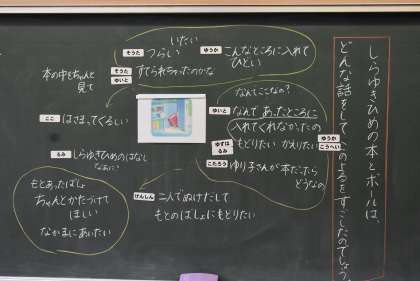 しらゆきひめの本とボールは、
どんな話をして のよるをすごしたのでしょう。
いたい
そうた つらい
ゆうか こんなところに入れて
ひどい
そうた すてられちゃったのかな
ゆいと
本の中もちゃんと
見て
ここ はさまってくるしい
るみ しらゆきひめのはなし
なんてここなの?
ゆいと なんで あったところに
入れてくれなかったの
ゆうか
こうへい
ゆずは
るみ
もどりたい かえりたい
こたろう ゆり子さんが本だったら
どうなの
けんしん 二人でぬけだして
もとのばしょにもどりたい
もとあったばしょ
ちゃんとかたづけて
ほしい
なかまにあいたい